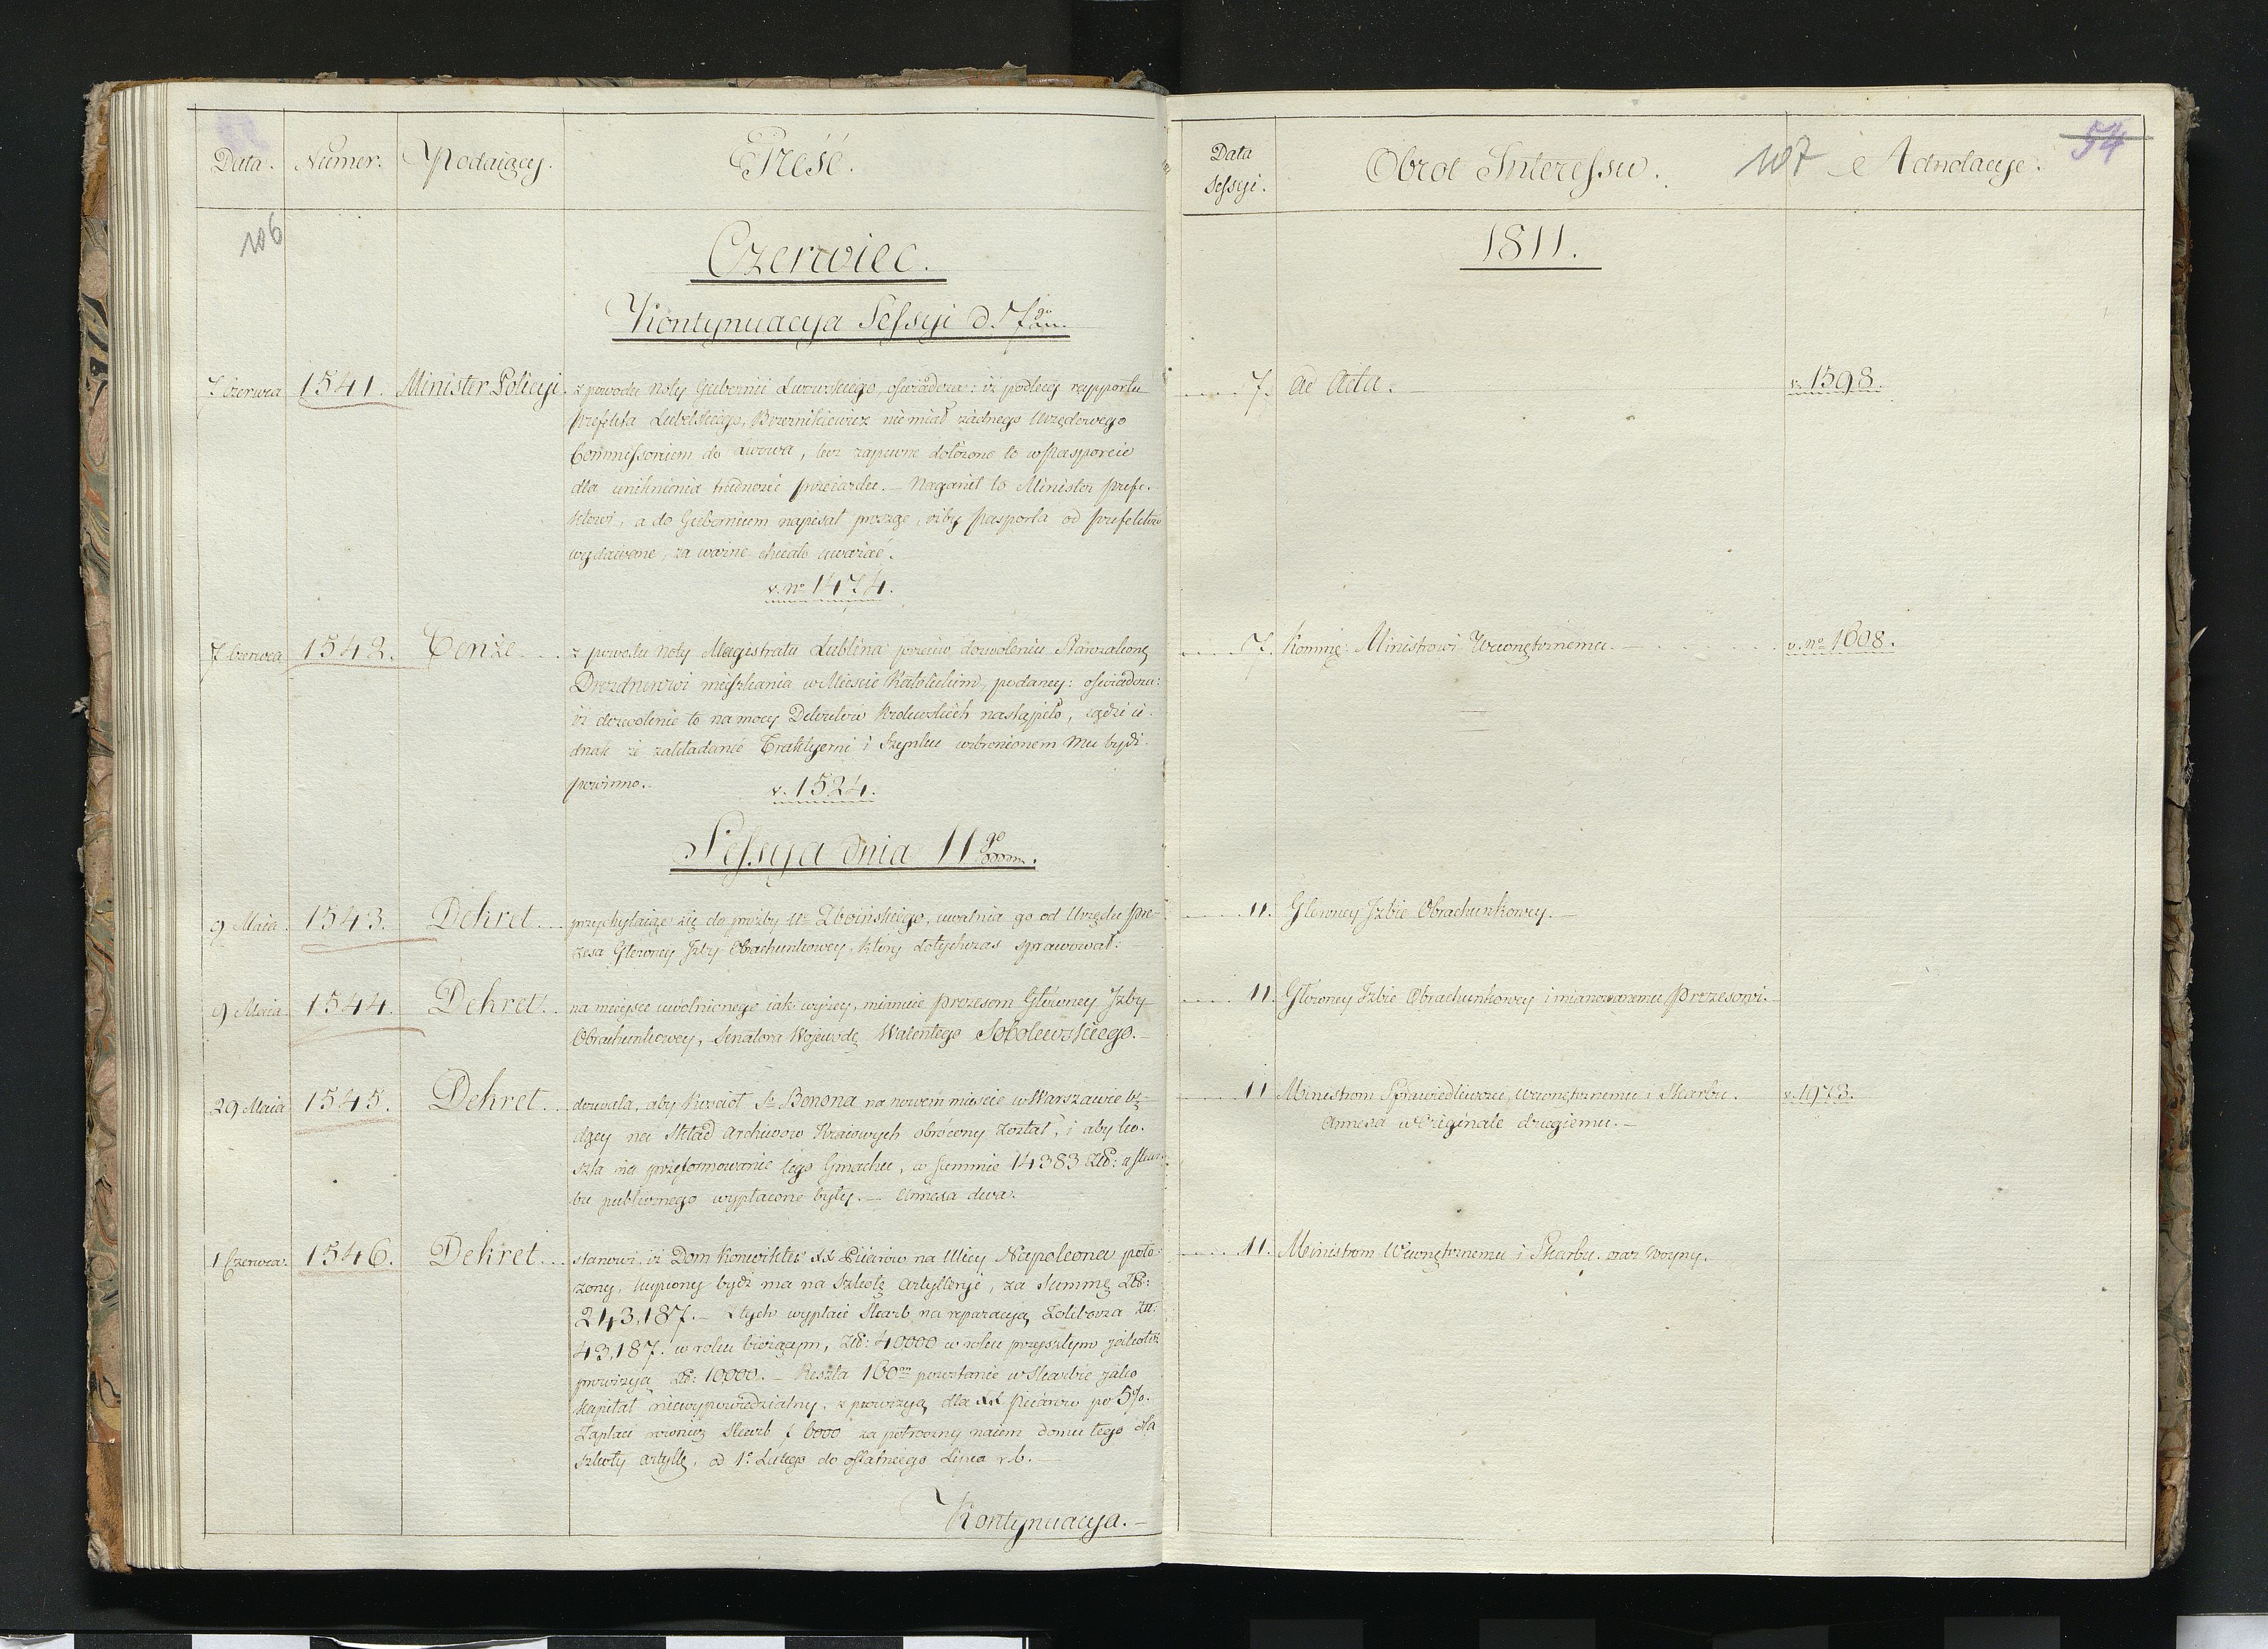 Data. Numer. Podaiący. Treść.
106
Czerwiec.
Kontynuacya Sessyi d. 7go
7 Czerwca 1541. Minister Policyi. z powodu noty Gubernii Lwowskiego, oświadcza: iż podług rapportu
Prefekta Lubelskiego, Brzeznikiewicz nie miał żadnego Urzędowego
Commissorium do Lwowa, lecz zapewne dołożono to w Pasporcie
dla uniknienia trudności przeiazdu. — Naganił to Minister Prefe-
ktowi, a do Gubernium napisał prosząc, ażby pasporta od Prefektów
wydawane, za ważne chciało uważać.
v. No 1474.
7 Czerwca 1542. Tenże z powodu noty Magistratu Lublina przeciw dozwoleniu Starozakonę
Drezdnerowi mieszkania w Mieście Katolickim, podaney: oświadcza:
iż dozwolenie to na mocy Dekretów Krolewskich nastąpiło, sądzi ie-
dnak że zakładanie Traktyerni i Szynku wzbronionem mu bydź
powinno.
v. 1524.
Sessya dnia 11go
9 Maia. 1543. Dekret przychylaiąc się do prożby Ur Zboinskiego, uwalnia go od Urzędu Pre-
zesa Głowney Jzby Obrachunkowey, który dotychczas sprawował:
9 Maia 1544. Dekret. na mieysce uwolnionego iak wyżey, mianuie Prezesem Główney Jzby
Obrachunkowey, Senatora Wojewodę Walentego Sobolewskiego. —
29 Maia 1545. Dekret dozwala, aby Kościoł So Benona na nowem mieście w Warszawie bę-
dący na Skład Archiwow Kraiowych obrócony został, i aby ko-
szta na przeformowanie tego Gmachu, w summie 14383 Złp: z Skar-
bu publicznego wypłacone były. — Annexa dwa.
1 Czerwca. 1546. Dekret stanowi, iż Dom Konwiktu XX Piiarów na Ulicy Napoleona poło-
żony, kupiony bydź ma na Szkołę Artylleryi, za Summę Złp:
243,187. — Z tych wypłaci Skarb na reparacyą Zoliborza Złł:
43,187. w roku bieżącym, Złp: 40000 w roku przyszłym jakotéż
prowizyą Złp: 10000. — Reszta 160m pozostanie w Skarbie jako
Kapitał niewypowiedzialny, z prowizyą dla XX Piiarów po 5%.
Zapłaci rownież Skarb f 6000 za połroczny naiem domu tego dla
szkoły artylle, od 1o Lutego do ostatniego Lipca r.b.
Kontynuacya. —
Data
Sessyi. Obrot Interessu. 107 Adnotacye. 54
1811.
7. ad Acta. — v. 1598.
7. Kommę: Ministrowi Wewnętrznemu. — v. No 1608.
11. Głowney Jzbie Obrachunkowey. —
11. Główney Jzbie Obrachunkowey i mianowanemu Prezesowi. —
11 Ministrom Sprawiedliwości, Wewnętrznemu i Skarbu. v. 1973.
Annexa w Originale drugiemu. —
11. Ministrom Wewnętrznemu i Skarbu. oraz Woyny.